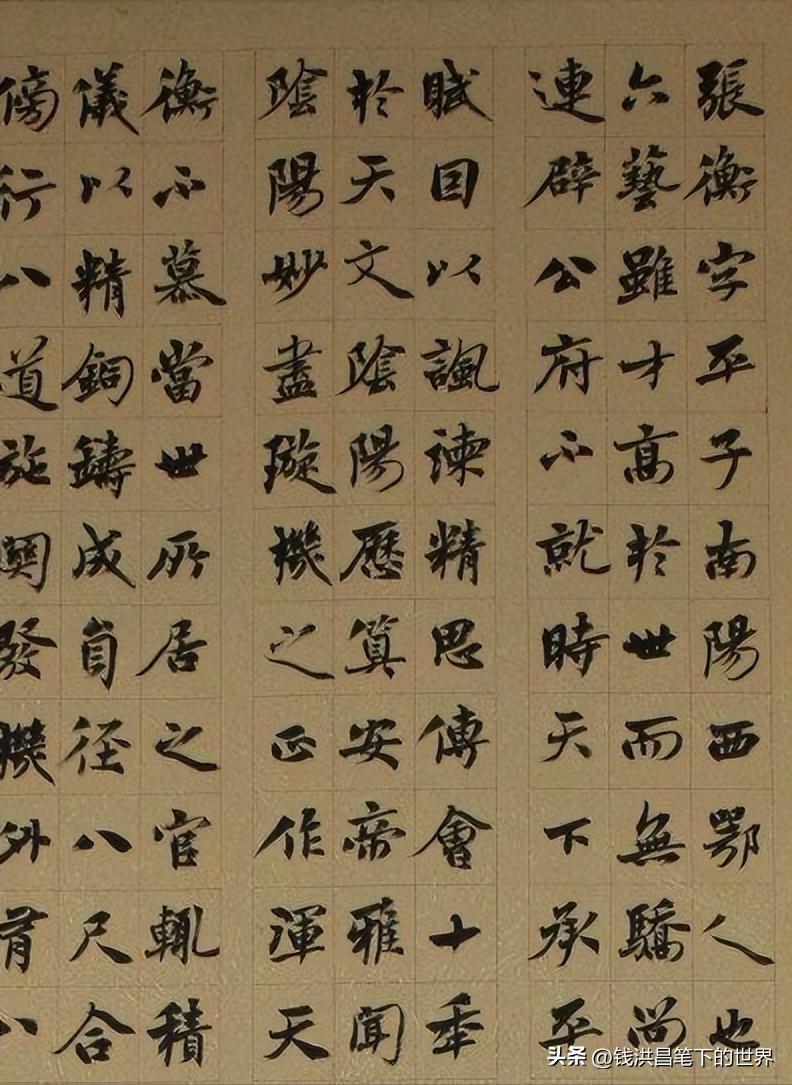 張衡字平子南陽西鄂人也
六藝雖才高於世而無驕尚
連辟公府不就時天下承平
賦因以諷諫精思傅會十年
於天文陰陽歷算安帝雅聞
陰陽妙盡璇機之正作渾天
衡不慕當世所居之官輒積
儀以精銅鑄成員径八尺合
傍行八道施關發機外首八
头条 @钱洪昌笔下的世界